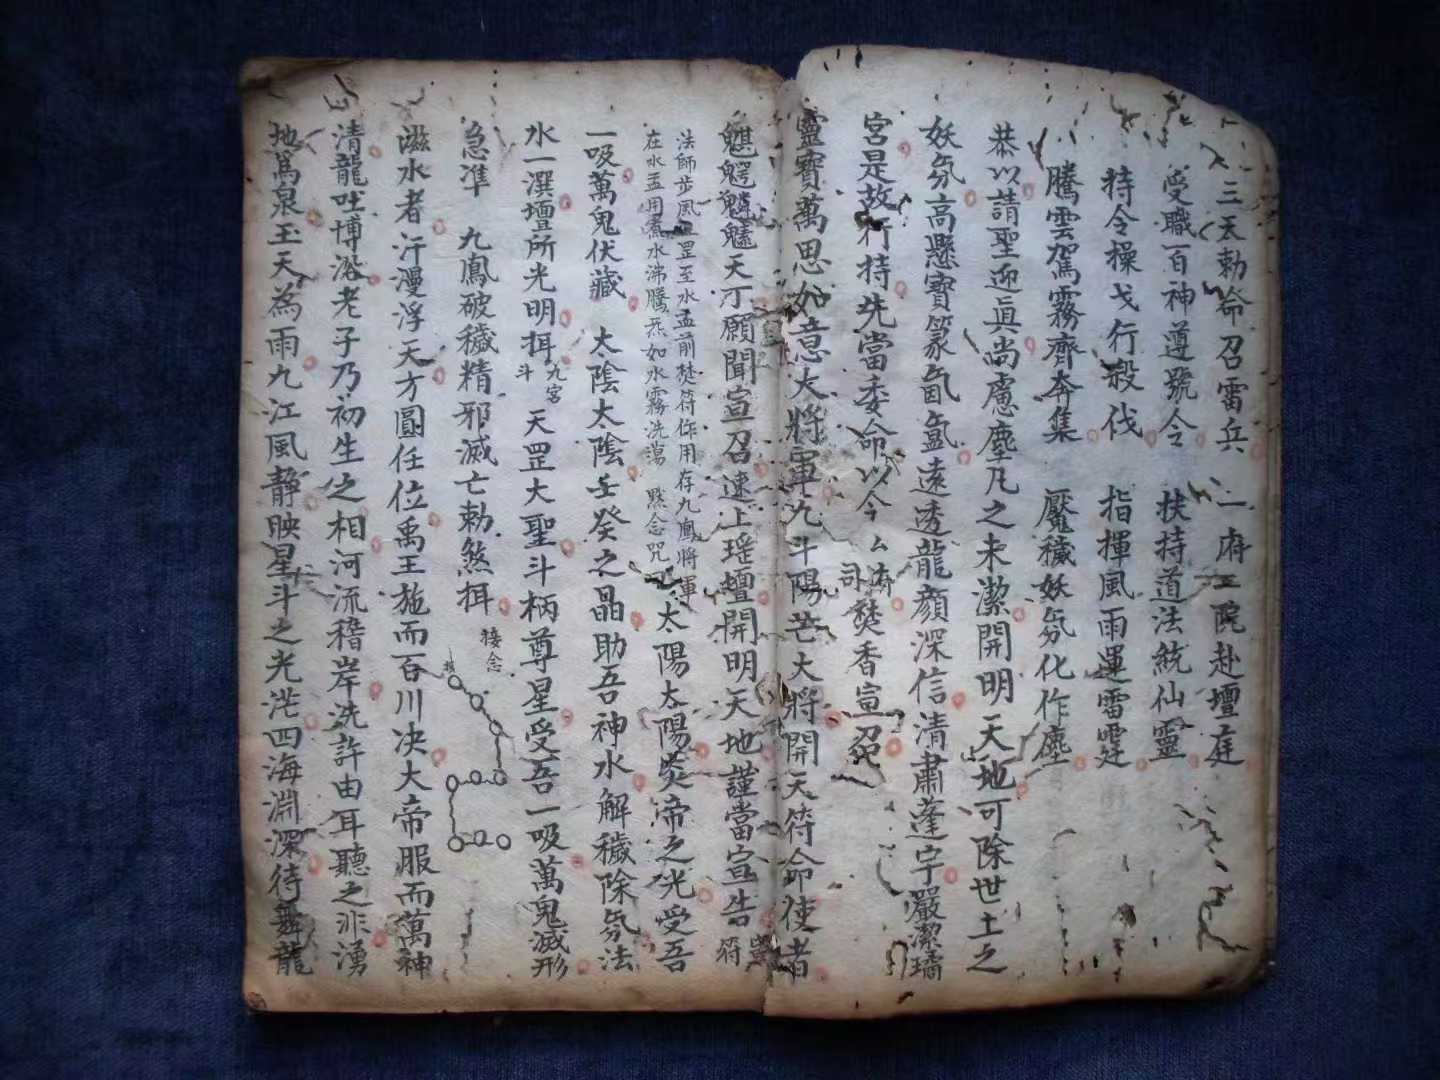 三天勅命召雷兵 一府二院赴壇庭
受職百神遵號令 扶持道法統仙靈
持令操戈行殺伐 指揮風雨運雷霆
騰雲駕霧齊奔集 魘穢妖氛化作塵
恭以請聖迎眞尚慮塵凡之未潔開明天地可除世土之
妖氛高懸寶篆氤氲遠透龍顔深信清肅蓬宇嚴潔璚
宮是故行持先當委命以今厶
司焚香宣召
靈寶萬思如意大將軍九斗陽芒大將開天符命使者
魌魍魑魅天丁願聞宣召速上瑶壇開明天地謹當宣告
符
法師步風罡至水盂前焚符作用存九鳳將軍
在水盂用煮水沸騰炁如水霧洗蕩 黙念咒
太陽太陽炎帝之光受吾
一吸萬鬼伏藏 太陰太陰壬癸之晶助吾神水解穢除氛法
水一潠壇所光明挕
九宮
斗
天罡大聖斗柄尊星受吾一吸萬鬼滅形
急準 九鳳破穢精邪滅亡勅煞挕
接念
滋水者汗漫浮天方圓任位禹王施而百川决大帝服而萬神
清龍吐博浴老子乃初生之相河流稽岸洗許由耳聽之非湧
地爲泉玉天為雨九江風靜映星斗之光茫四海淵深待舞龍